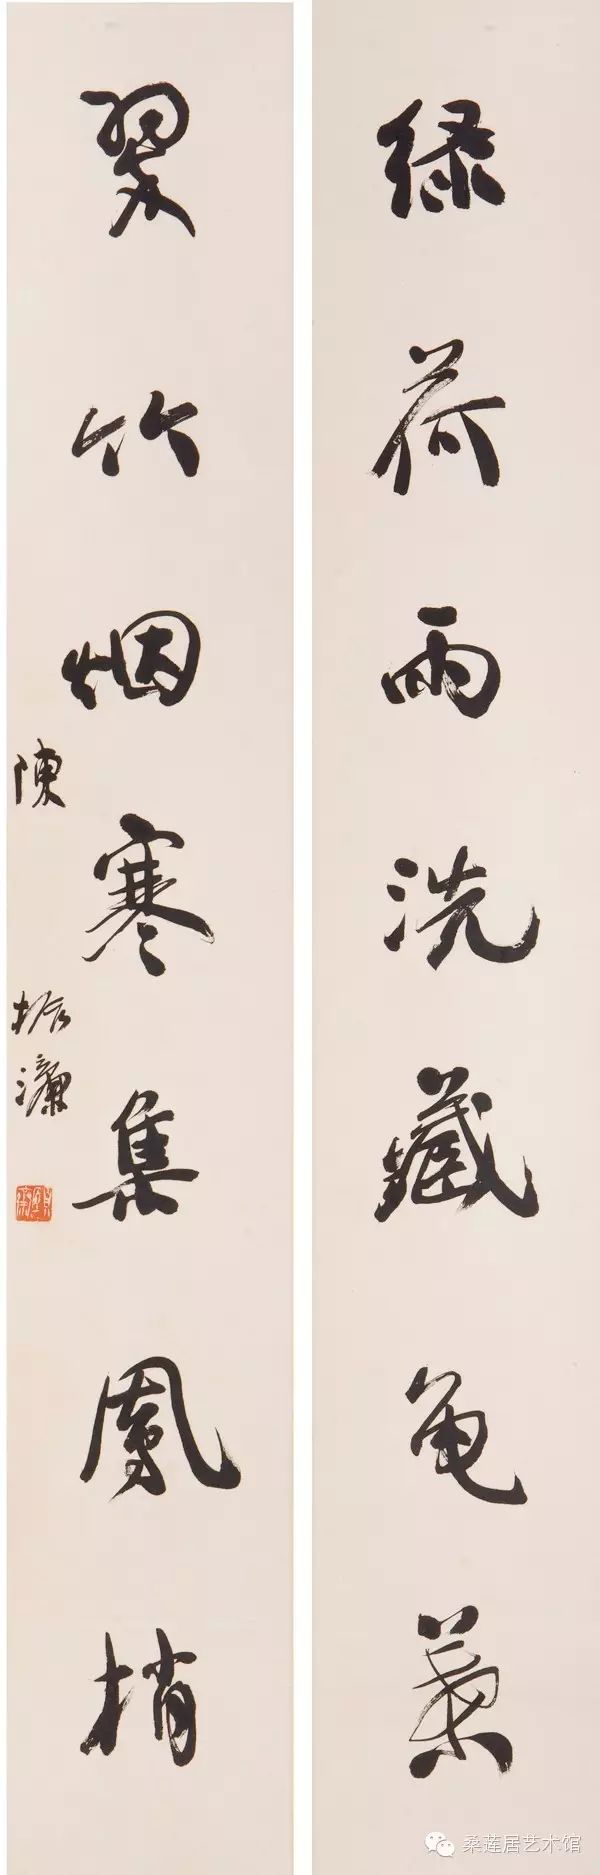 绿荷雨洗藏龟葉
翠竹烟寒集鳳梢
陳振濂
桑莲居艺术馆